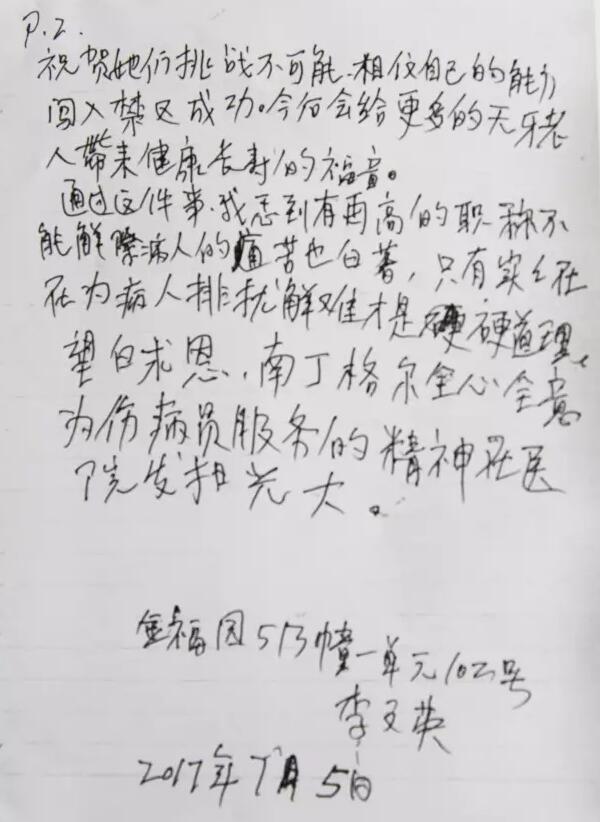 P.2.
祝贺她们挑战不可能.相仪自己的能力
闯入禁区成功。今后会给更多的无牙老
人带来健康长寿的福音。
通过这件事.我悉到有再高的职称不
能解除病人的痛苦也白着,只有实在
在为病人排扰解难才是硬道理。
望白求恩.南丁格尔全心全意
为伤病员服务的精神在医
院发扬光大。
金福园513幢一单元102号
李文英
2017年 5日